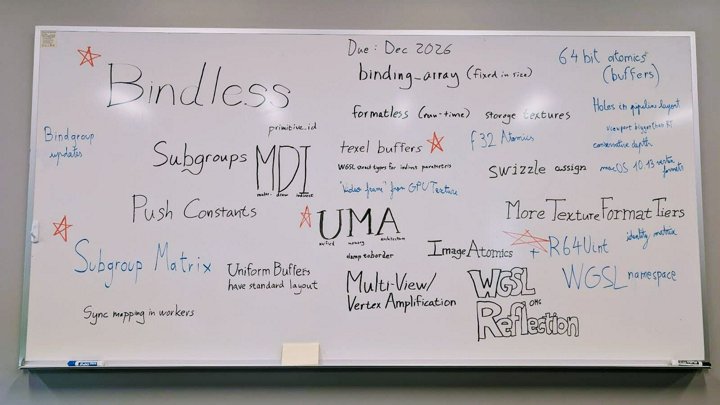 Due: Dec 2026
Bindless
binding_array (fixed in size)
64 bit atomics
(buffers)
formatless (non-time) storage textures
Holes in pipeline layout
viewport bigger than RT
conservative depth
macOS 10.13 vertex
formats
Bindgroup
updates
primitive_id
Subgroups
MDI
multi draw indirect
texel buffers
F32 Atomics
WGSL struct types for indirect parameters
"Video frame" from GPUTexture
swizzle assign
Push Constants
UMA
unified memory architecture
More Texture Format Tiers
clamp to border
Image Atomics + R64Uint
identity matrix
Subgroup Matrix
Uniform Buffers
have standard layout
Multi-View/
Vertex Amplification
WGSL
OMG
Reflection
WGSL namespace
Sync mapping in workers